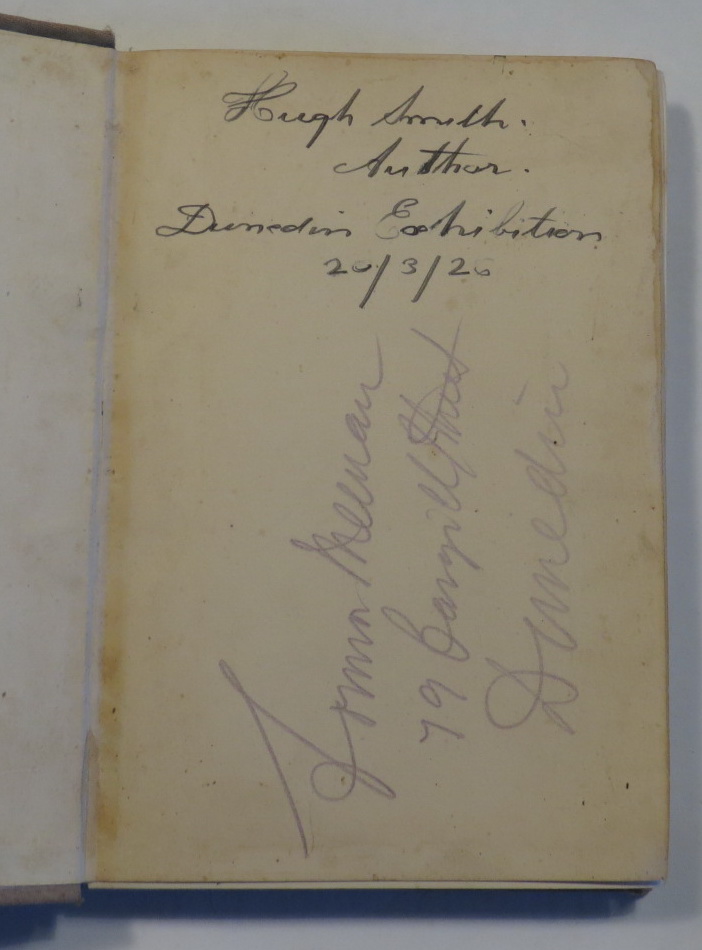 Hugh Smith.
Author.
Dunedin Exhibition
20/3/26
Meenan
79 Cargill Street
Dunedin